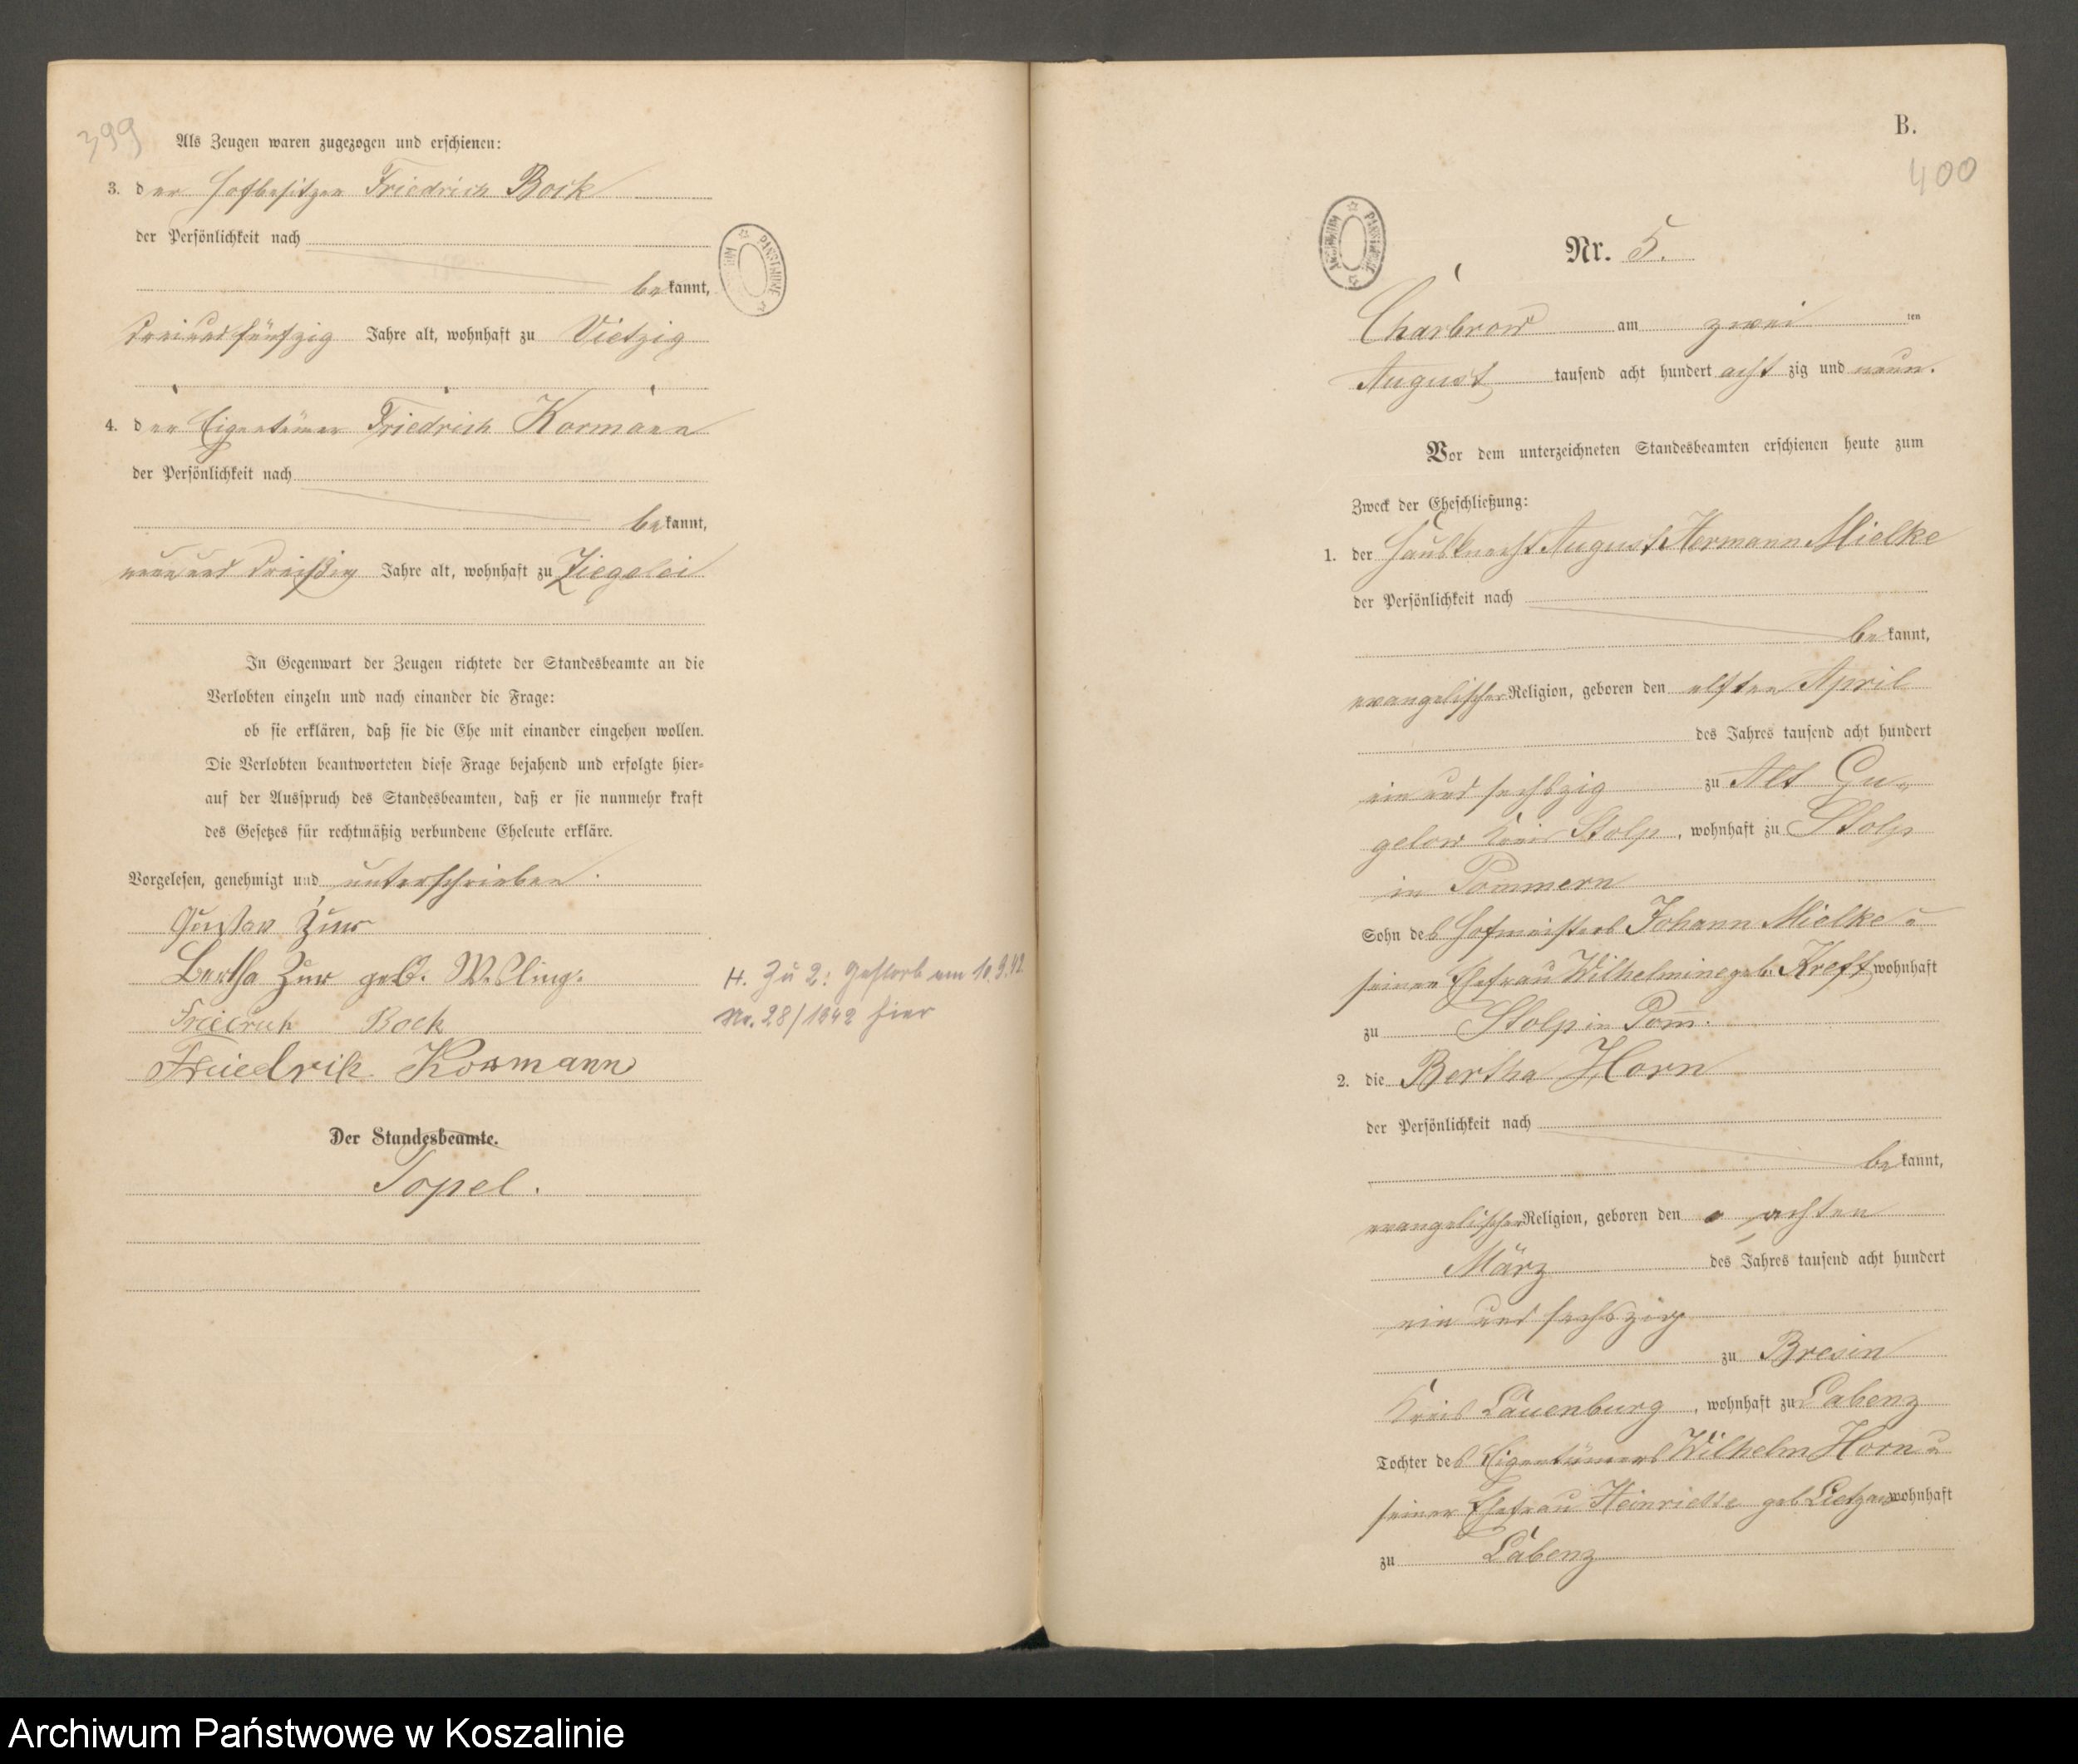 399
Als Zeugen waren zugezogen und erschienen:
3. der Hofbesitzer Friedrich Bock
der Persönlichkeit nach
bekannt,
dreiundfünfzig Jahre alt, wohnhaft zu Vietzig
4. der Eigentümer Friedrich Kormann
der Persönlichkeit nach
bekannt,
neunund dreißig Jahre alt, wohnhaft zu Ziegelei
In Gegenwart der Zeugen richtete der Standesbeamte an die
Verlobten einzeln und nach einander die Frage:
ob sie erklären, daß sie die Ehe mit einander eingehen wollen.
Die Verlobten beantworteten diese Frage bejahend und erfolgte hier-
auf der Ausspruch des Standesbeamten, daß er sie nunmehr kraft
des Gesetzes für rechtmäßig verbundene Eheleute erkläre.
Vorgelesen, genehmigt und unterschrieben.
Gustav Zur
Bertha Zur geb.
Friedrich Bock
Friedrik Kormann
Der Standesbeamte.
Topel.
H. Zu 2: Gestorb am 10.9.42
Nr. 28/1942 hier
ARCHIWUM PAŃSTWOWE
B.
400
ARCHIWUM PAŃSTWOWE
Nr. 5.
Charbrow am zwei ten
August tausend acht hundert acht zig und neun.
Vor dem unterzeichneten Standesbeamten erschienen heute zum
Zweck der Eheschließung:
1. der Hausknecht August Hermann Mielke
der Persönlichkeit nach
bekannt,
evangelischer Religion, geboren den elften April
des Jahres tausend acht hundert
ein und sechszig zu Alt Gu-
gelow Kreis Stolp, wohnhaft zu Stolp
in Pommern
Sohn des Hofmeisters Johann Mielke u
seiner Ehefrau Wilhelmine geb. Kreft wohnhaft
zu Stolp in Pom̄.
2. die Bertha Horn
der Persönlichkeit nach
bekannt,
evangelischer Religion, geboren den achten
März des Jahres tausend acht hundert
ein und sechszig
zu Bresin
Kreis Lauenburg, wohnhaft zu Labenz
Tochter des Eigentümers Wilhelm Horn u
seiner Ehefrau Heinriette geb Lietzau wohnhaft
zu Labenz
Archiwum Państwowe w Koszalinie